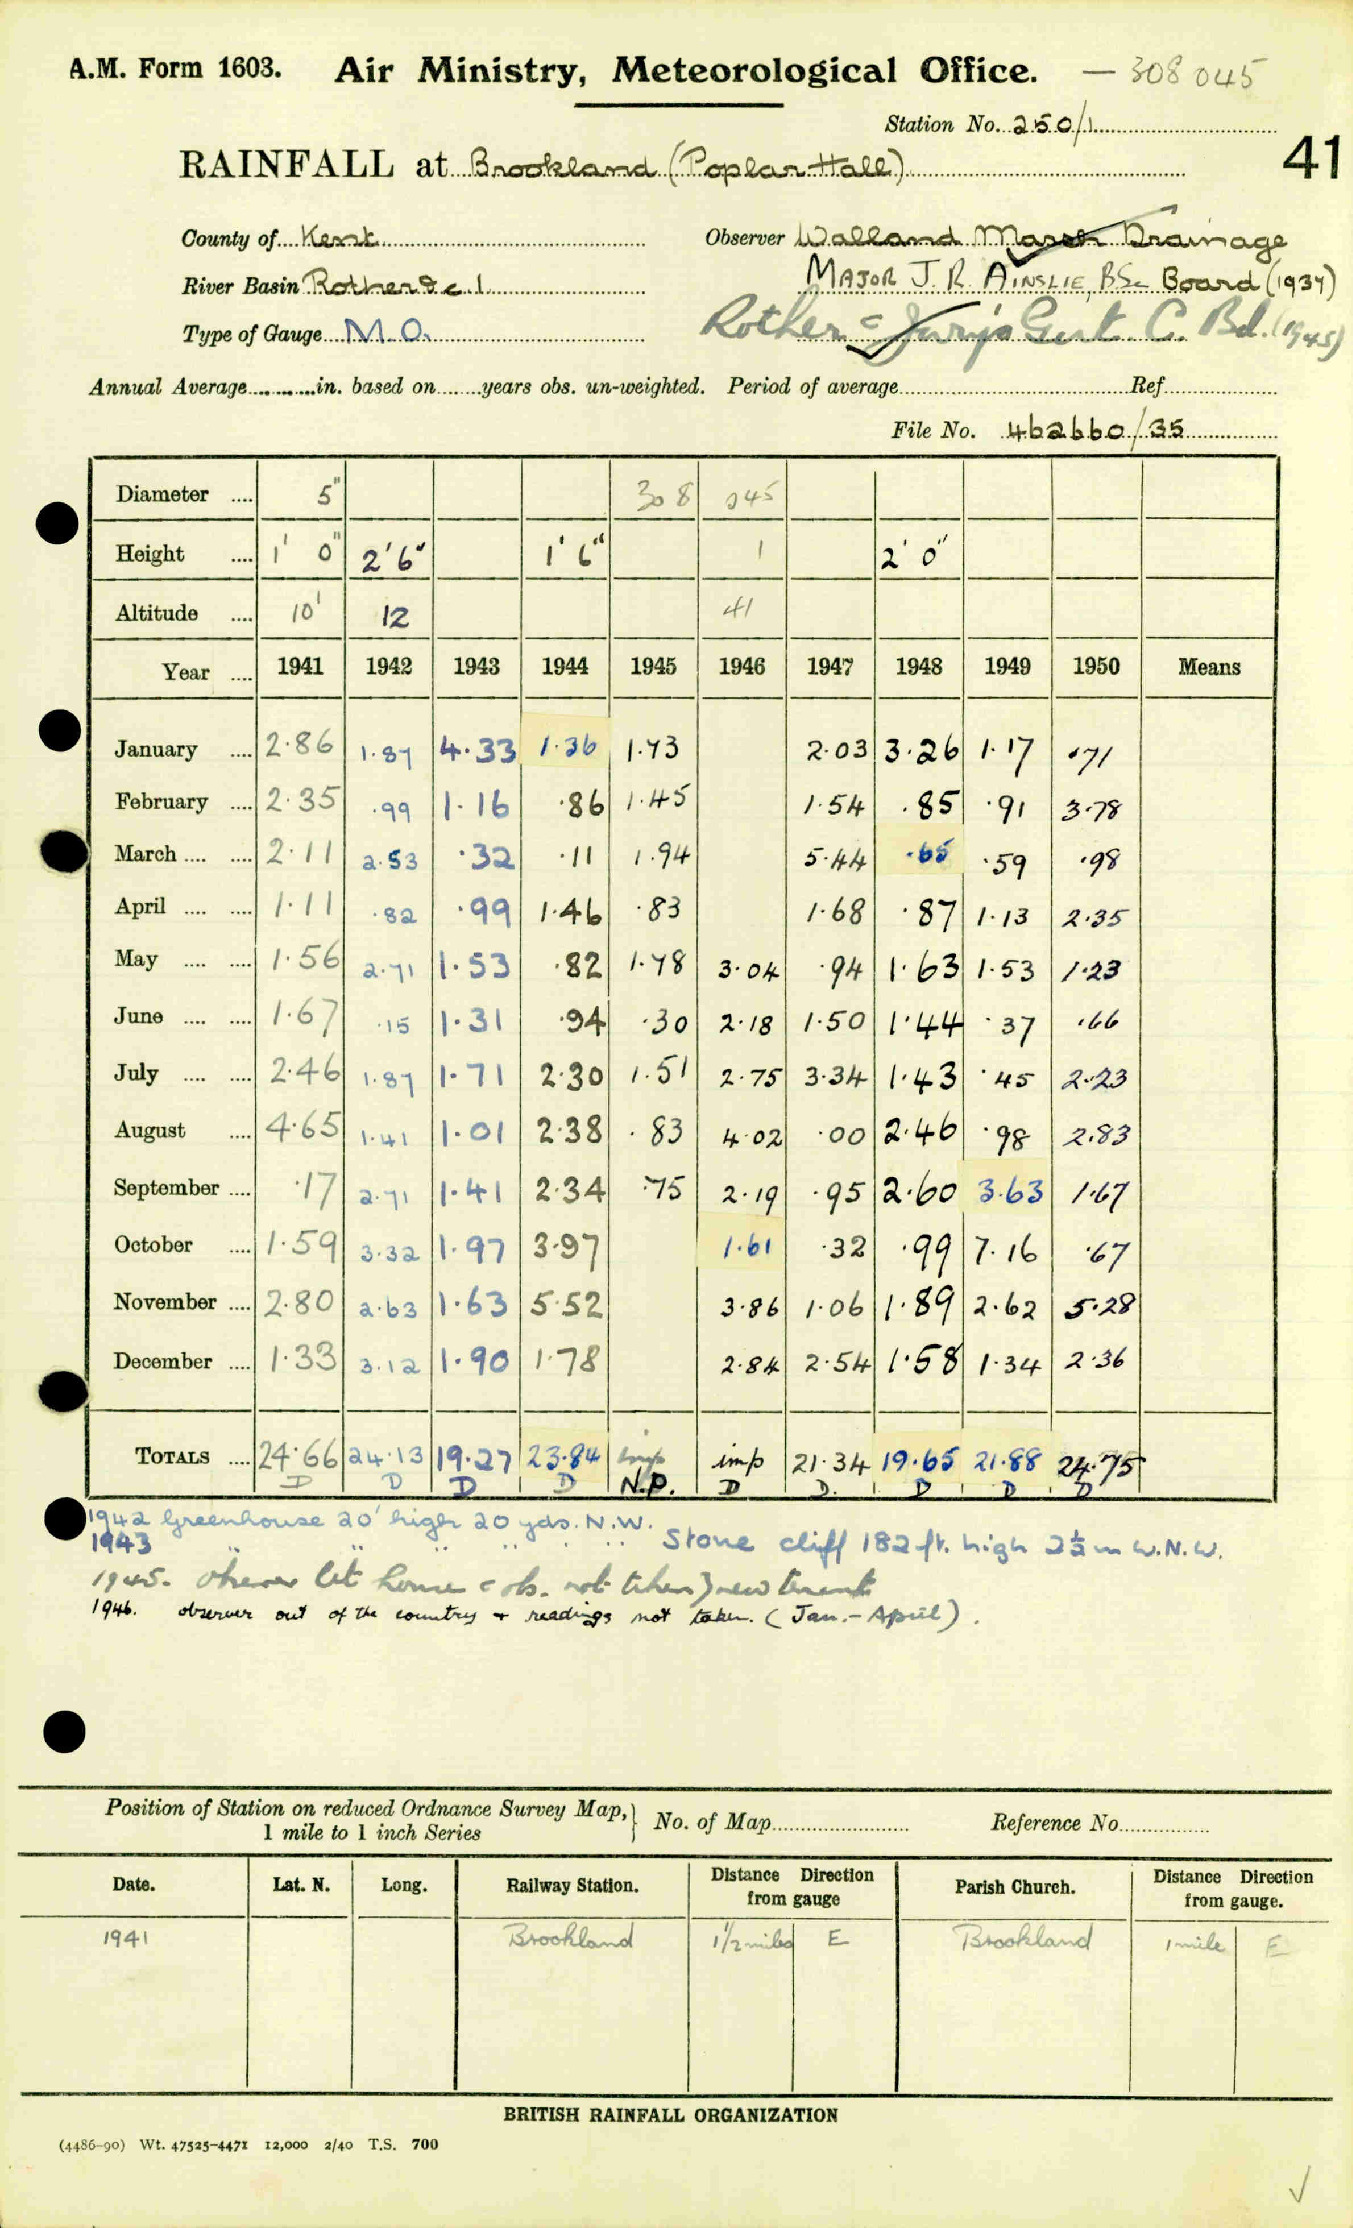 A.M. Form 1603. Air Ministry, Meteorological Office. — 308045
Station No. 250/1
41
RAINFALL at Brookland (Poplar Hall)
County of Kent Observer Walland Marsh Drainage
River Basin Rother &c 1 MAJOR J. R. AINSLIE, BSc Board (1937)
Type of Gauge M.O. Rother & Jury's Gut C. Bd. (1945)
Annual Average in. based on years obs. un-weighted. Period of average Ref
File No. 462660/35
Diameter 5" 308 045
Height 1' 0" 2'6" 1' 6" 1 2' 0"
Altitude 10' 12 41
Year 1941 1942 1943 1944 1945 1946 1947 1948 1949 1950 Means
January 2.86 1.87 4.33 1.36 1.73 2.03 3.26 1.17 .71
February 2.35 .99 1.16 .86 1.45 1.54 .85 .91 3.78
March 2.11 2.53 .32 .11 1.94 5.44 .65 .59 .98
April 1.11 .82 .99 1.46 .83 1.68 .87 1.13 2.35
May 1.56 2.71 1.53 .82 1.78 3.04 .94 1.63 1.53 1.23
June 1.67 .15 1.31 .94 .30 2.18 1.50 1.44 .37 .66
July 2.46 1.87 1.71 2.30 1.51 2.75 3.34 1.43 .45 2.23
August 4.65 1.41 1.01 2.38 .83 4.02 .00 2.46 .98 2.83
September .17 2.71 1.41 2.34 .75 2.19 .95 2.60 3.63 1.67
October 1.59 3.32 1.97 3.97 1.61 .32 .99 7.16 .67
November 2.80 2.63 1.63 5.52 3.86 1.06 1.89 2.62 5.28
December 1.33 3.12 1.90 1.78 2.84 2.54 1.58 1.34 2.36
TOTALS 24.66 24.13 19.27 23.84 imp imp 21.34 19.65 21.88 24.75
D D D D N.P. D D. D D D
1942 Greenhouse 20' high 20 yds. N.W.
1943 " " " " " Stone cliff 182 ft. high 2½ m W.N.W.
1945. observer let house & obs. not taken } new tenent
1946. observer out of the country & readings not taken. (Jan.-April).
Position of Station on reduced Ordnance Survey Map, } No. of Map Reference No.
1 mile to 1 inch Series
Date. Lat. N. Long. Railway Station. Distance Direction from gauge Parish Church. Distance Direction from gauge.
1941 Brookland 1½ miles E Brookland 1 mile E
BRITISH RAINFALL ORGANIZATION
(4486-90) Wt. 47525-4471 12,000 2/40 T.S. 700